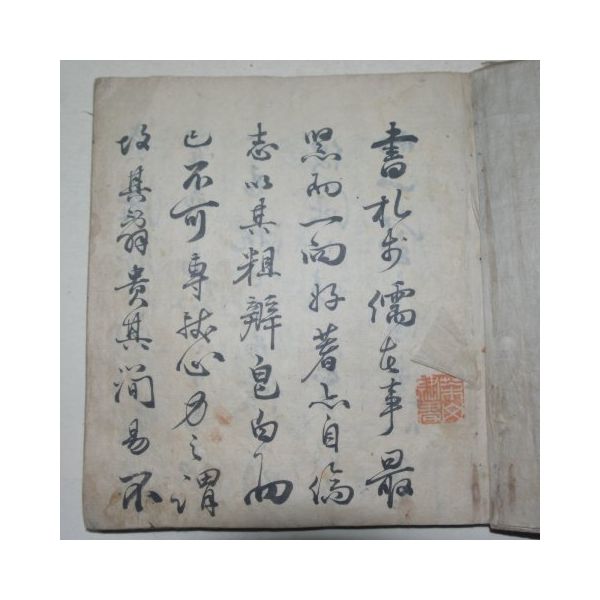 書札於儒者事最
而一向好著亦自
志以其粗辨皂白而
已不可專心力之謂
故其辭貴其簡易不